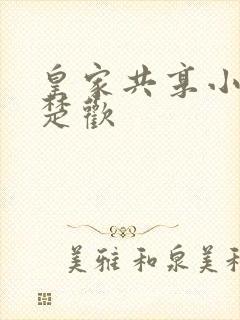 皇家共享小
楚歡
美雅和泉美和